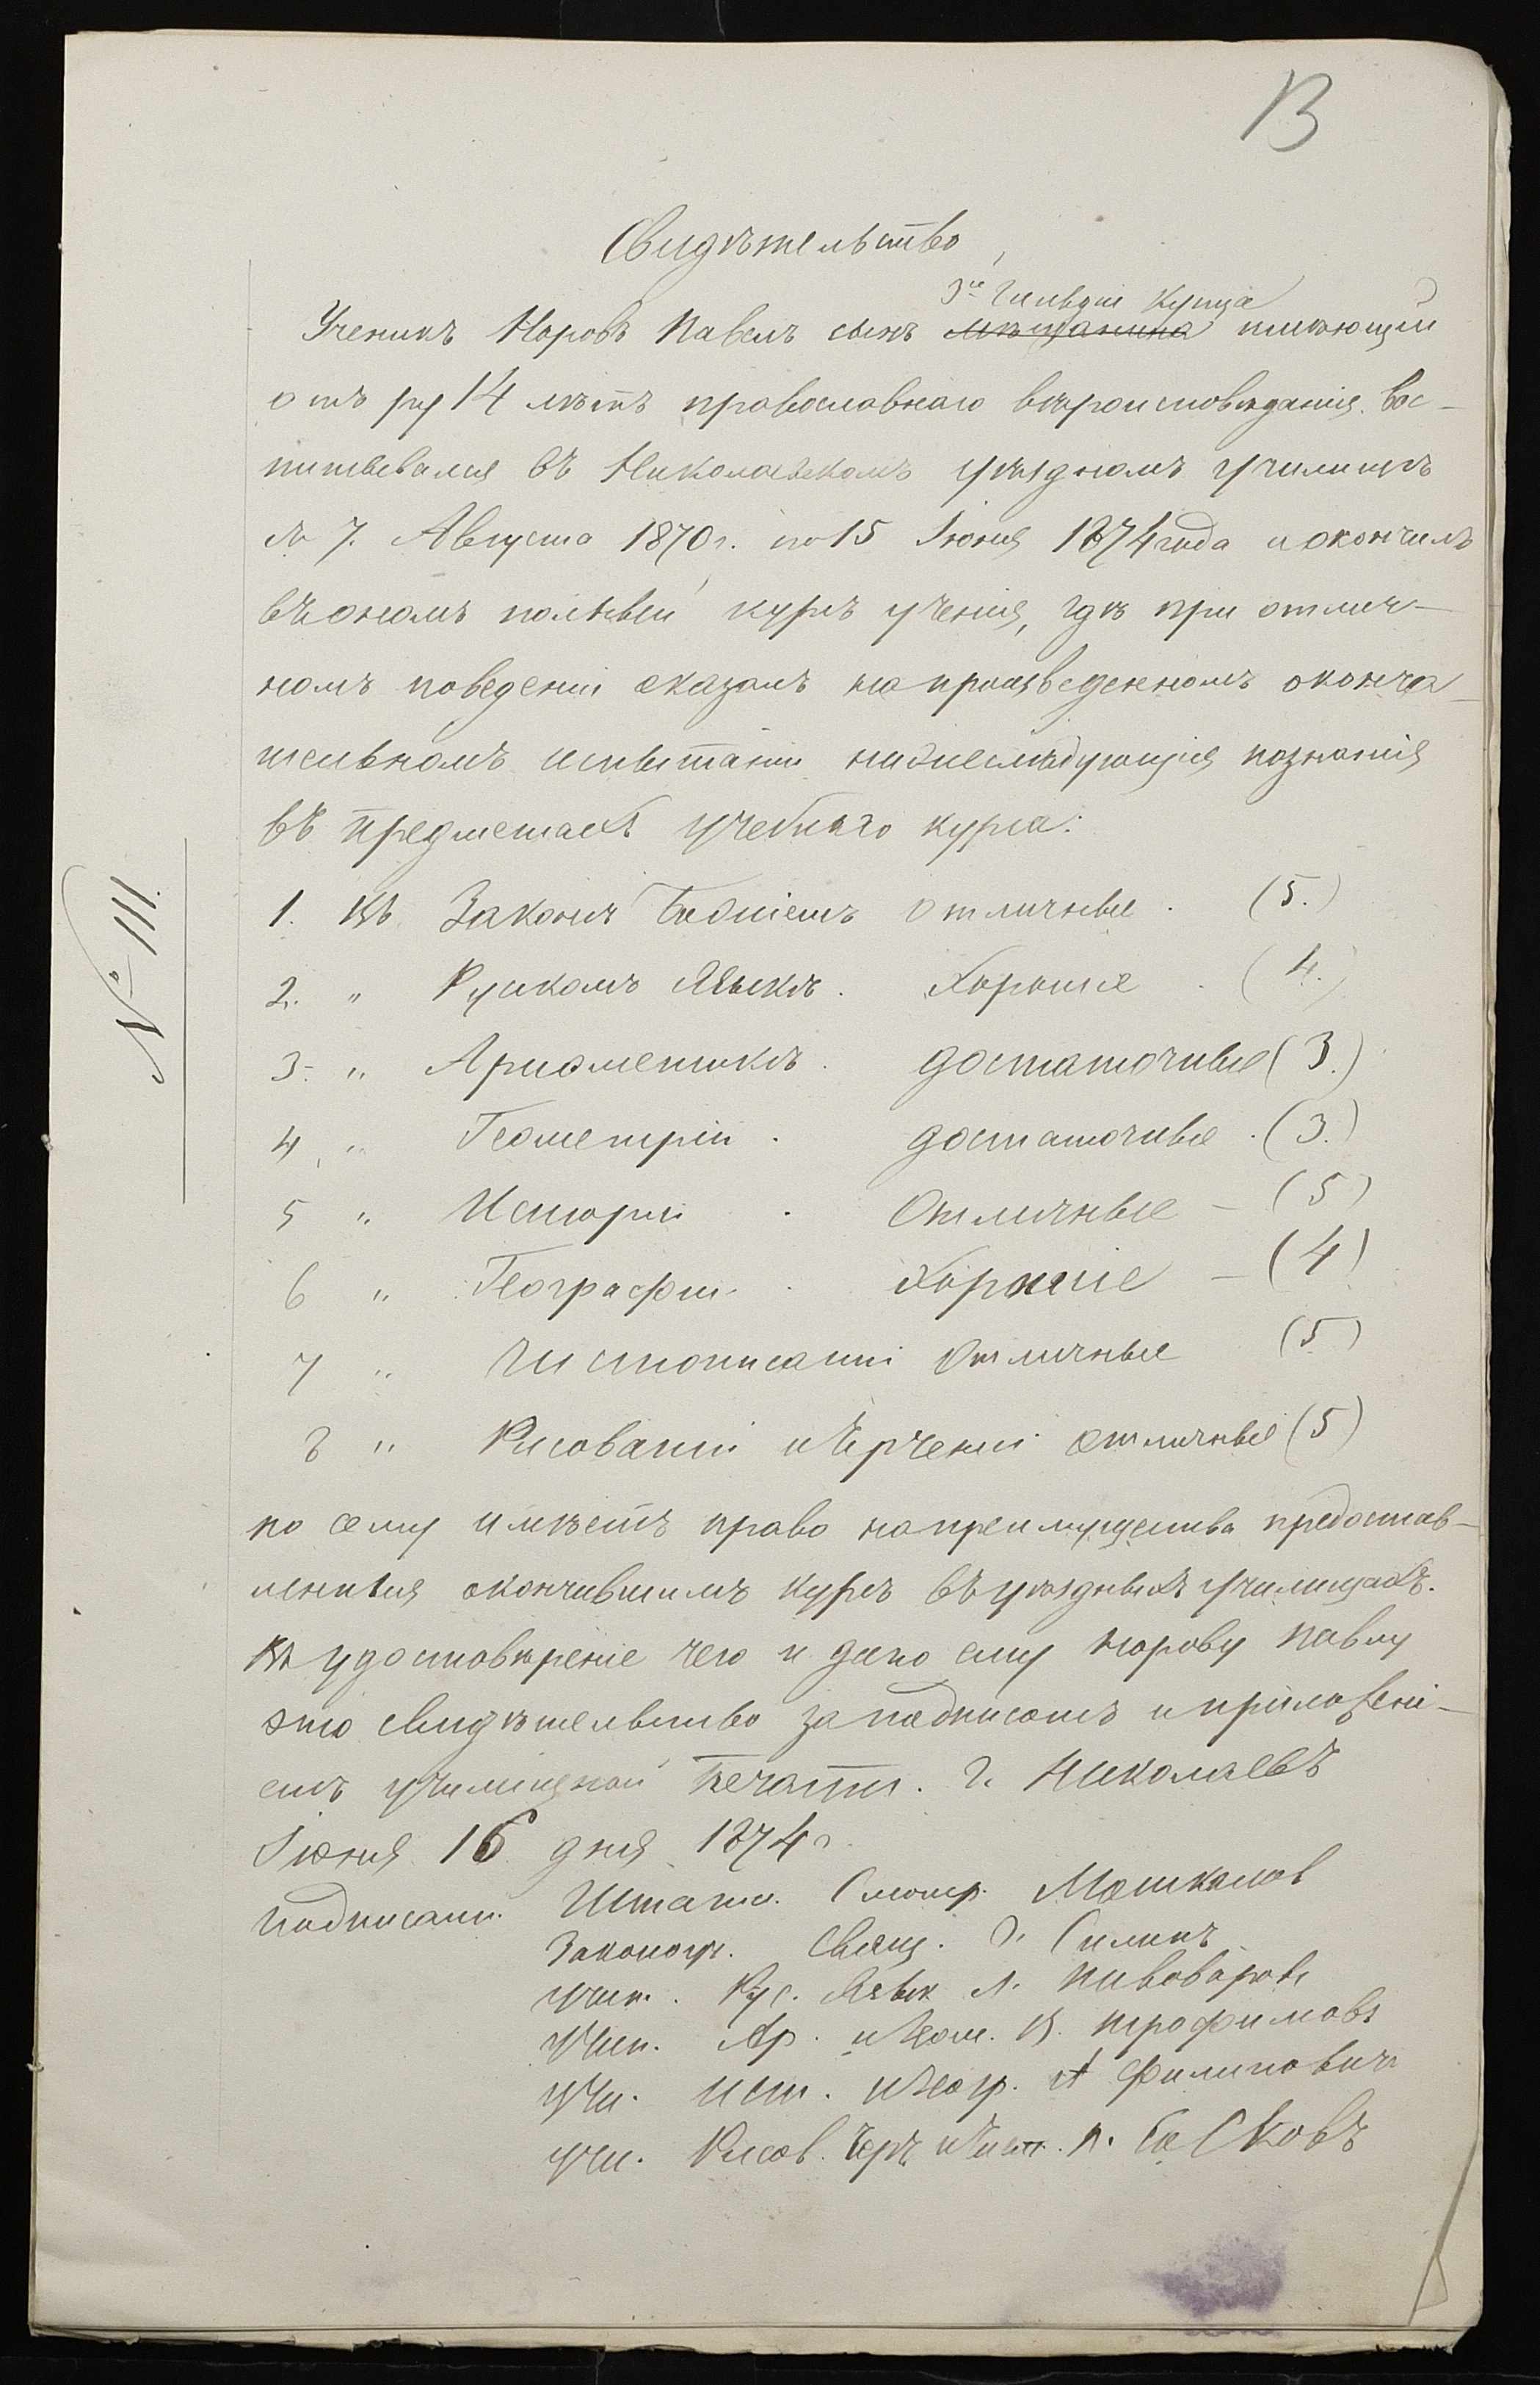 13
Свидѣтельство
3ей Гильдіи Купца
Ученикъ Наровъ Павелъ сынъ мѣщанина имѣющій
отъ ру 14 лѣтъ православнаго вѣроисповѣданія. Вос-
питывался въ Николаевскомъ уѣздномъ училищѣ
съ 7. Августа 1870 г. по 15 Іюня 1874 года и окончилъ
въ ономъ полный курсъ ученія, гдѣ при отлич-
номъ поведеніи оказалъ на произведенномъ оконча-
тельномъ испытаніи нижеслѣдующія познанія
въ предметахъ учебнаго курса:
1. Въ Законѣ Божіемъ отличные. (5.)
2. " Рускомъ Языкѣ. Хорошіе. (4.)
3. " Ариѳметикѣ. достаточные (3.)
4. " Геометріи. достаточные. (3.)
5 " Исторіи. Отличные - (5)
6 " Географіи. Хорошіе - (4)
7 " Чистописаніи Отличные (5)
8 " Рисованіи и Черченіи отличные (5)
№ 111.
по сему имѣетъ право на преимущества предостав-
ленныя окончившимъ курсъ въ уѣздныхъ училищахъ.
Въ удостовѣреніе чего и дано ему Нарову Павлу
это свидѣтельство за подписомъ и приложені-
емъ училищной Печати. Г. Николаевъ
Іюня 16 дня 1874 г.
Подписали. Штатн. Смотр. Машкалов
Законоуч. Свящ. Силинъ
Учит. Рус. Язык Л. Пивоваровъ
Учит. Ар. и Геом. В. Трофимовъ
Учи. Ист. и Геогр. А Филиповичъ
Учи. Рисов. Чер. и Чист. П. Басковъ